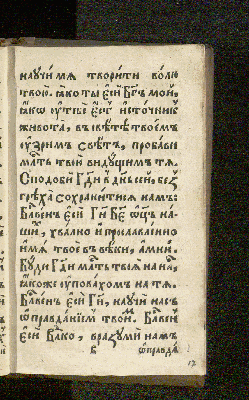 наꙋчи́ мѧ твори́ти во́лю
твою̀. ꙗ҆́ко ты̀ є҆сѝ бг҃ъ мо́й,
ꙗ҆́кѡ ᲂу҆ тебѐ є҆́сть и҆сто́чникъ
живота̀, въ свѣ́тѣ твое́мъ
ᲂу҆́зримъ свѣ́тъ, проба́ви
млⷭ҇ть твою̀ ви́дѧщимъ тѧ̀.
Сподо́би гдⷭ҇и в дн҃ь се́й, без̾
грѣха̀ сохрани́тисѧ на́мъ:
Бл҃ве́нъ є҆сѝ гдⷭ҇и бж҃е ѻ҆ц҃ъ на́-
ши, хва́лно и҆ просла́влено
и҆́мѧ твоѐ въ вѣ́ки, а҆ми́нь.
Бꙋ́ди гдⷭ҇и млⷭ҇ть твоѧ̀ на на́съ,
ꙗ҆́коже ᲂу҆пова́хомъ на тѧ̀.
Бл҃ве́нъ є҆сѝ гдⷭ҇и, наꙋчи́ на́съ
ѡ҆правда́нїємъ твои́мъ. Бл҃ве́нъ
є҆сѝ влⷣко, вразꙋмѝ на́мъ
в҃ ѡ҆правда
12